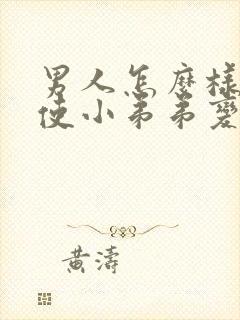 男人怎麼樣
使小弟弟變
黃濤